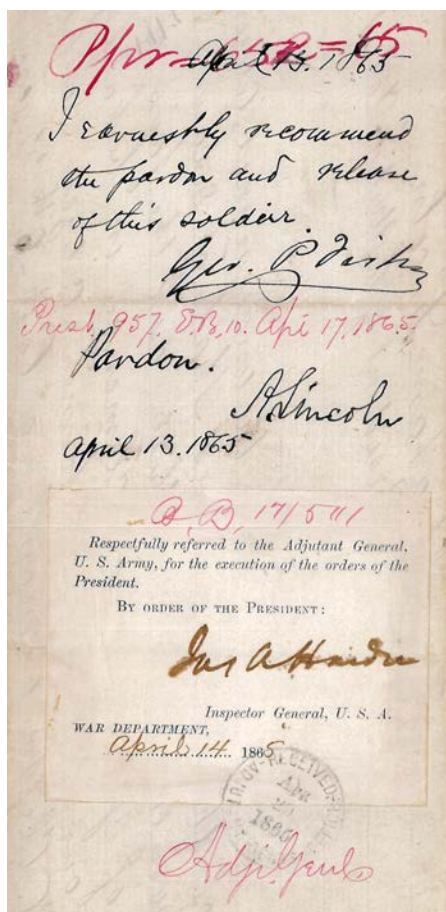 April 13. 1865
I earnestly recommend
the pardon and release
of this soldier.
Geo. P. Fisher
Prest, 957. E.B, 10. Apl 17, 1865.
Pardon.
A. Lincoln
April 13. 1865
Respectfully referred to the Adjutant General,
U. S. Army, for the execution of the orders of the
President.
BY ORDER OF THE PRESIDENT:
Jas A Hardie
Inspector General, U. S. A.
WAR DEPARTMENT,
April 14 1865
RECEIVED
1865